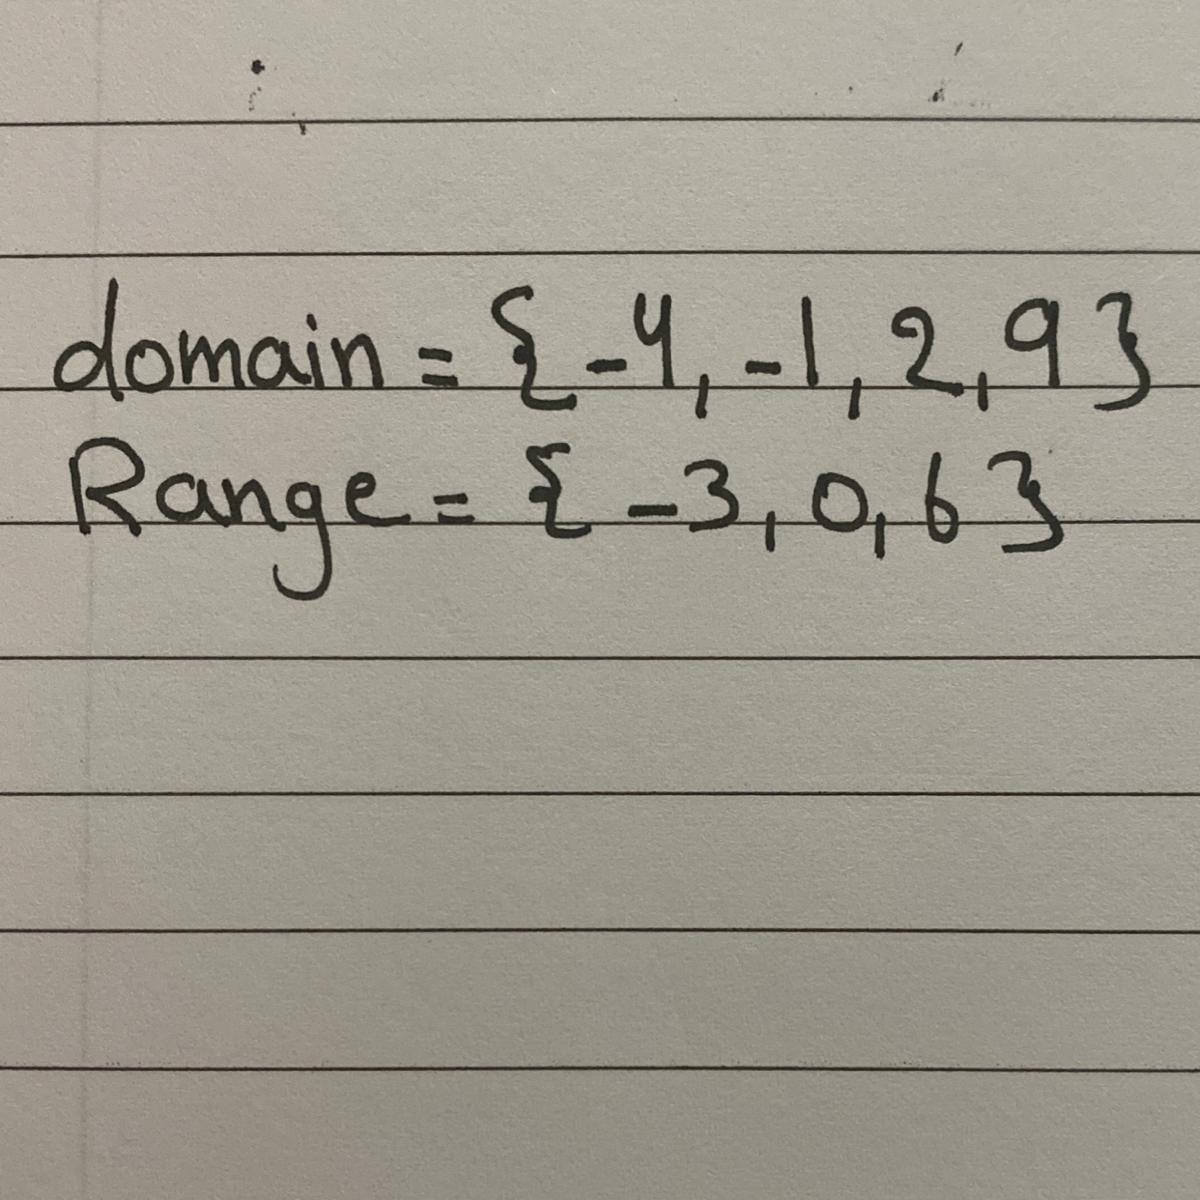 domain = {-4, -1, 2, 9}
Range = {-3, 0, 6}